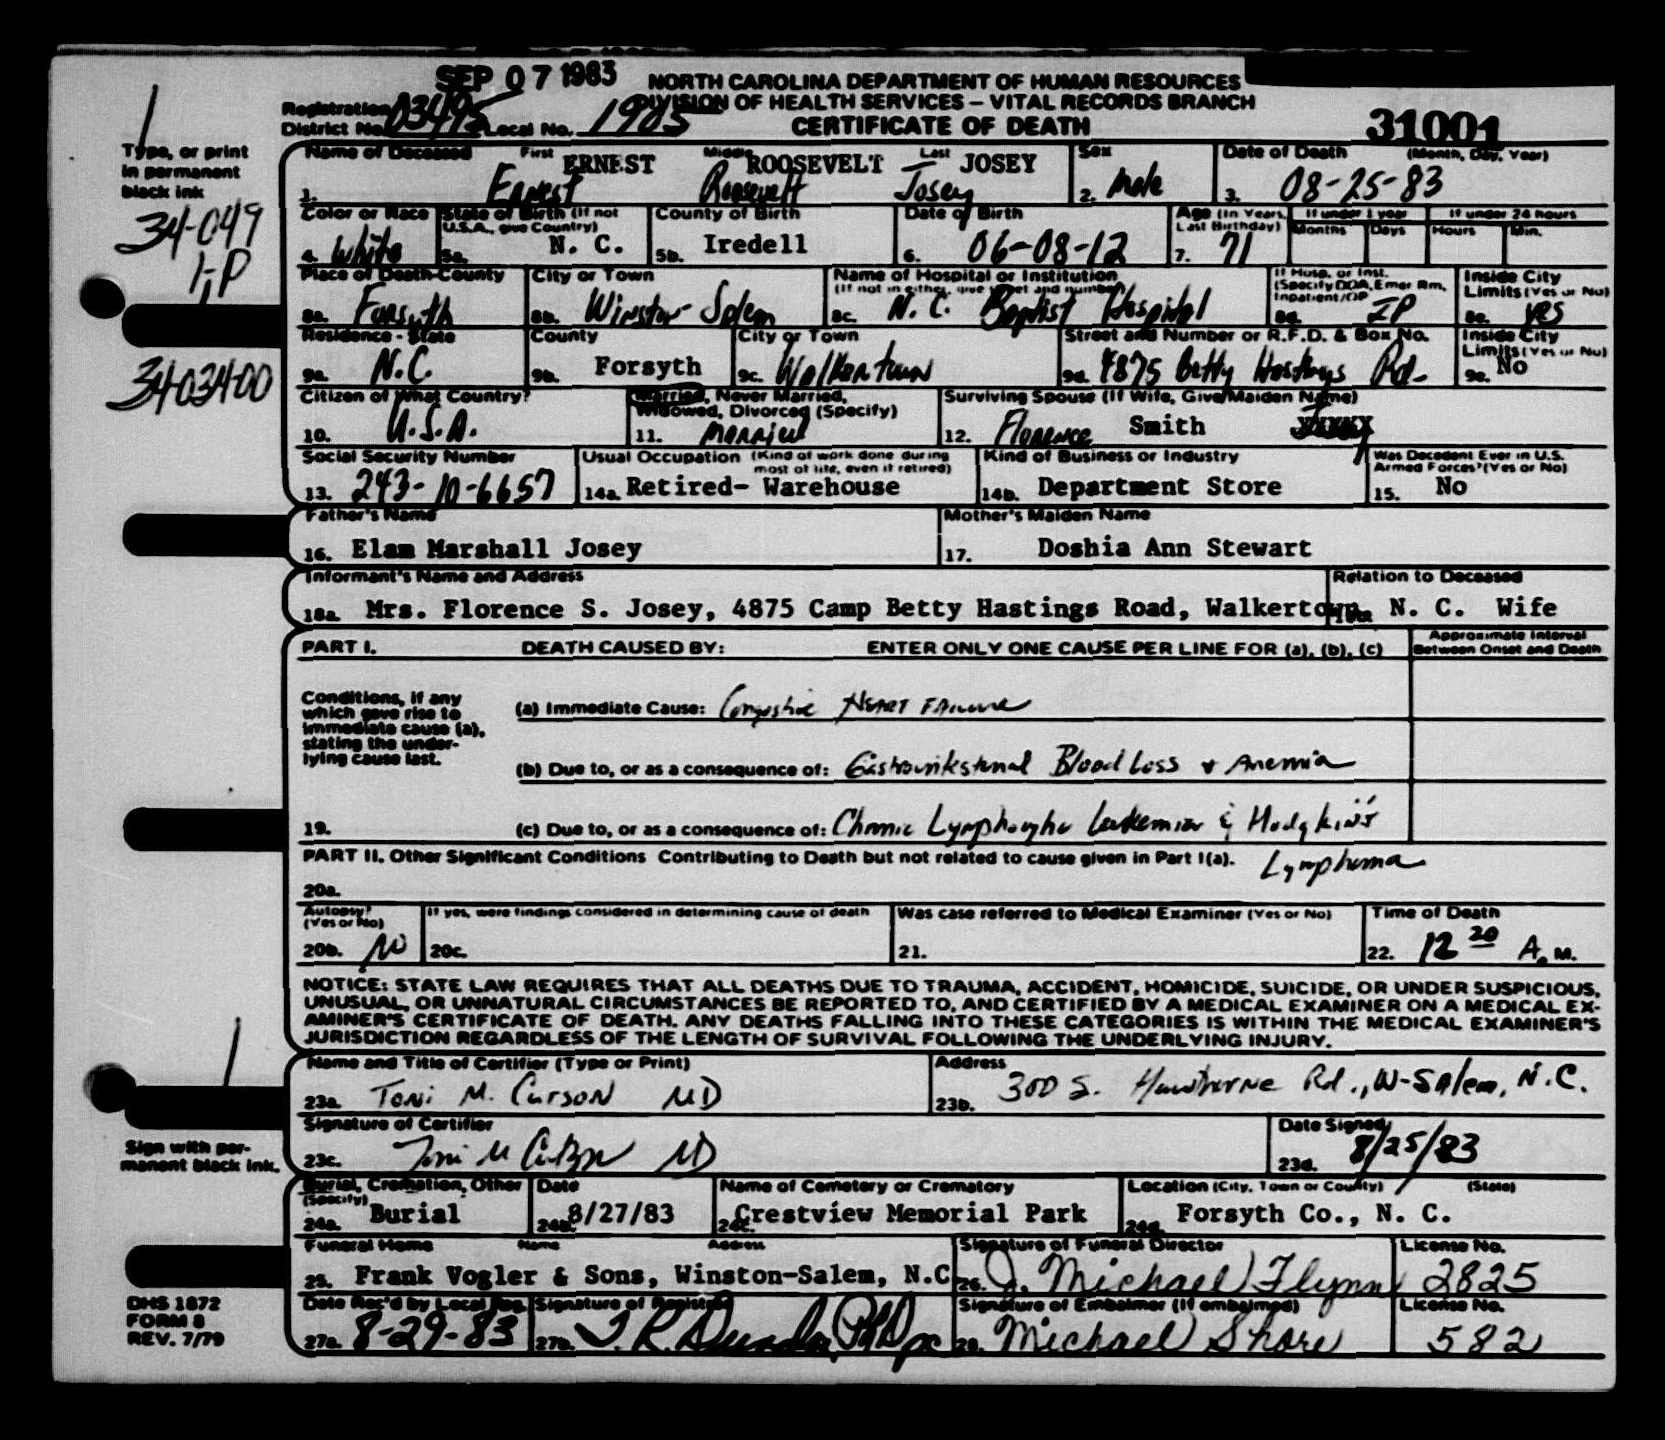 SEP 07 1983
NORTH CAROLINA DEPARTMENT OF HUMAN RESOURCES
DIVISION OF HEALTH SERVICES – VITAL RECORDS BRANCH
CERTIFICATE OF DEATH
Registration District No. 03495 Local No. 1905
31001
Type, or print
in permanent
black ink
34-049
1-P
34-034-00
Name of Deceased First Middle Last
1. ERNEST ROOSEVELT JOSEY
Ernest Roosevelt Josey
Sex
2. Male
Date of Death (Month, Day, Year)
3. 08-25-83
Color or Race
4. White
State of Birth (If not U.S.A., give Country)
5a. N. C.
County of Birth
5b. Iredell
Date of Birth
6. 06-08-12
Age (In Years, Last Birthday)
7. 71
If under 1 year
Months Days
If under 24 hours
Hours Min.
Place of Death-County
8a. Forsyth
City or Town
8b. Winston Salem
Name of Hospital or Institution
(If not in either, give street and number)
8c. N. C. Baptist Hospital
If Hosp. or Inst. (Specify DOA, Emer Rm, Inpatient/OP
8d. IP
Inside City Limits (Yes or No)
8e. yes
Residence - State
9a. N.C.
County
9b. Forsyth
City or Town
9c. Walkertown
Street and Number or R.F.D. & Box No.
9d. 4875 Betty Hastings Rd.
Inside City Limits (Yes or No)
9e. No
Citizen of What Country?
10. U.S.A.
Married, Never Married, Widowed, Divorced (Specify)
11. Married
Surviving Spouse (If Wife, Give Maiden Name)
12. Florence Smith
Social Security Number
13. 243-10-6657
Usual Occupation (Kind of work done during most of life, even if retired)
14a. Retired- Warehouse
Kind of Business or Industry
14b. Department Store
Was Decedent Ever in U.S. Armed Forces? (Yes or No)
15. No
Father's Name
16. Elam Marshall Josey
Mother's Maiden Name
17. Doshia Ann Stewart
Informant's Name and Address
18a. Mrs. Florence S. Josey, 4875 Camp Betty Hastings Road, Walkertown, N. C.
Relation to Deceased
Wife
PART I. DEATH CAUSED BY: ENTER ONLY ONE CAUSE PER LINE FOR (a), (b), (c)
Approximate Interval Between Onset and Death
Conditions, if any
which gave rise to
immediate cause (a),
stating the under-
lying cause last.
(a) Immediate Cause: Congestive Heart Failure
(b) Due to, or as a consequence of: Gastrointestinal Blood Loss & Anemia
19. (c) Due to, or as a consequence of: Chronic Lymphocytic Leukemia & Hodgkin's
Lymphoma
PART II. Other Significant Conditions Contributing to Death but not related to cause given in Part I(a).
20a.
Autopsy? (Yes or No)
20b. No
If yes, were findings considered in determining cause of death
20c.
Was case referred to Medical Examiner (Yes or No)
21.
Time of Death
22. 12 20 A. M.
NOTICE: STATE LAW REQUIRES THAT ALL DEATHS DUE TO TRAUMA, ACCIDENT, HOMICIDE, SUICIDE, OR UNDER SUSPICIOUS,
UNUSUAL, OR UNNATURAL CIRCUMSTANCES BE REPORTED TO, AND CERTIFIED BY A MEDICAL EXAMINER ON A MEDICAL EX-
AMINER'S CERTIFICATE OF DEATH. ANY DEATHS FALLING INTO THESE CATEGORIES IS WITHIN THE MEDICAL EXAMINER'S
JURISDICTION REGARDLESS OF THE LENGTH OF SURVIVAL FOLLOWING THE UNDERLYING INJURY.
Name and Title of Certifier (Type or Print)
23a. Toni M. Carson MD
Address
23b. 300 S. Hawthorne Rd., W-Salem, N.C.
Sign with per-
manent black ink.
Signature of Certifier
23c. Toni M MD
Date Signed
23d. 8/25/83
Burial, Cremation, Other (Specify)
24a. Burial
Date
24b. 8/27/83
Name of Cemetery or Crematory
24c. Crestview Memorial Park
Location (City, Town or County) (State)
24d. Forsyth Co., N. C.
Funeral Home Name Address
25. Frank Vogler & Sons, Winston-Salem, N.C.
Signature of Funeral Director
26. J. Michael Flynn
License No.
2825
Date Rec'd by Local Reg.
27a. 8-29-83
Signature of Registrar
27b.
Signature of Embalmer (If embalmed)
28. Michael Shore
License No.
582
DHS 1872
FORM 8
REV. 7/79